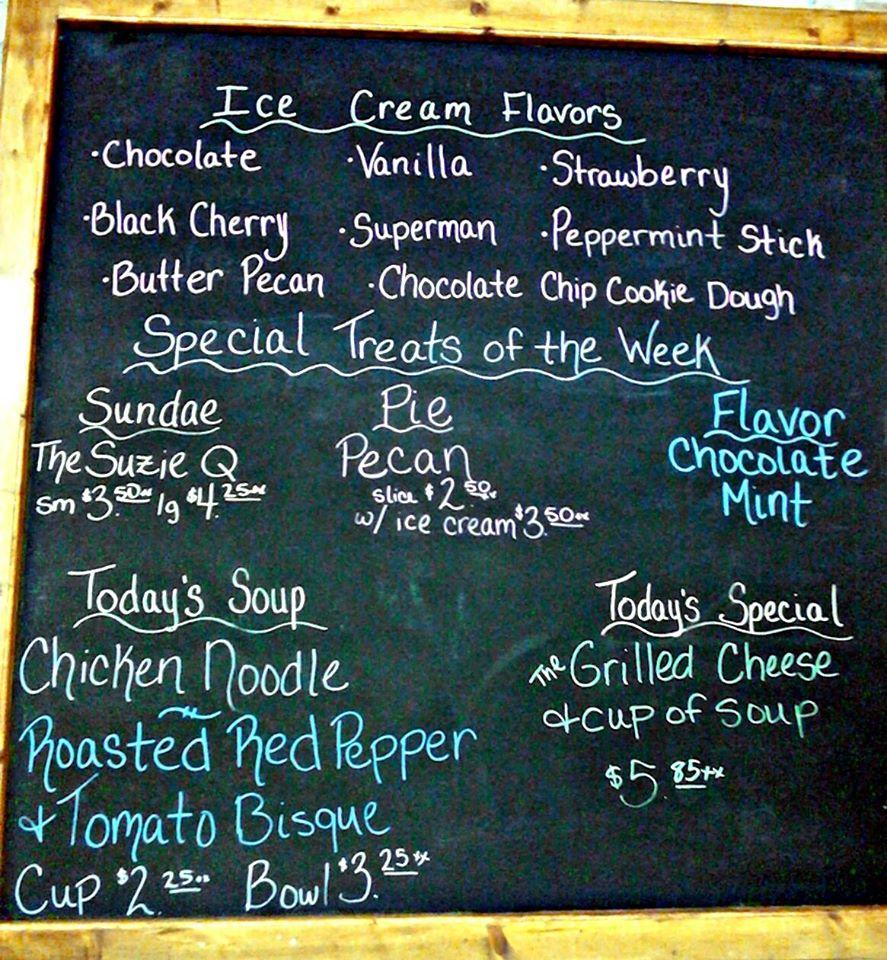 Ice Cream Flavors
·Chocolate ·Vanilla ·Strawberry
·Black Cherry ·Superman ·Peppermint Stick
·Butter Pecan ·Chocolate Chip Cookie Dough
Special Treats of the Week
Sundae
The Suzie Q
sm $3.50 lg $4.25
Pie
Pecan
slice $2.50
w/ ice cream $3.50
Flavor
Chocolate
Mint
Today's Soup
Chicken Noodle
Roasted Red Pepper
& Tomato Bisque
Cup $2.25 Bowl $3.25
Today's Special
The Grilled Cheese
& cup of soup
$5.85